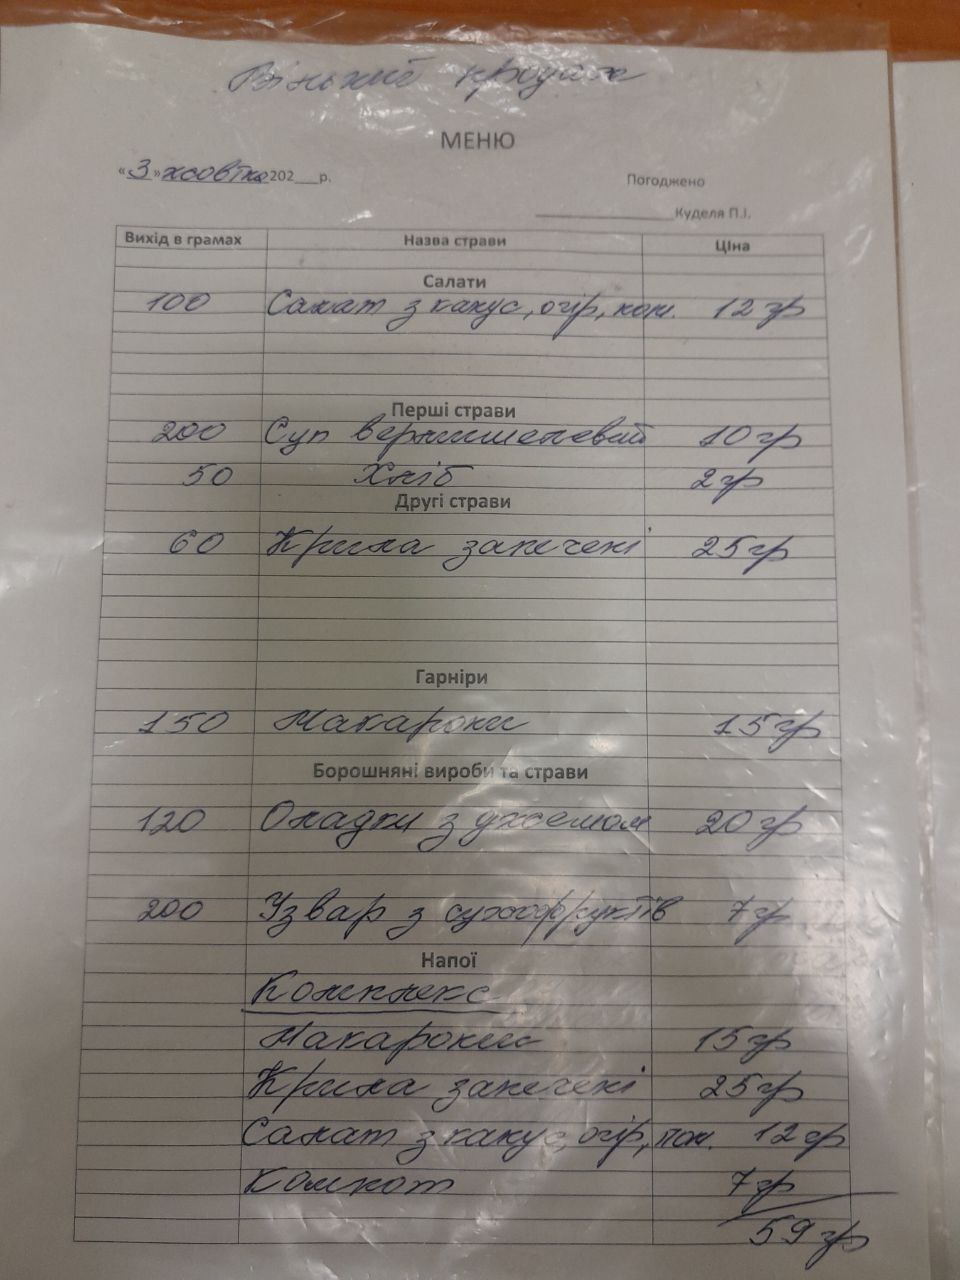 МЕНЮ
«3» жовтня 202___р.
Погоджено
Куделя П.І.
Вихід в грамах Назва страви Ціна
Салати
100 Салат з капус, огір, пом. 12 гр
Перші страви
200 Суп вермишелевий 10 гр
50 Хліб 2 гр
Другі страви
60 Крила запечені 25 гр
Гарніри
150 Макарони 15 гр
Борошняні вироби та страви
120 Оладки з джемом 20 гр
200 Узвар з сухофруктів 7 гр
Напої
Комплекс
Макарони 15 гр
Крила запечені 25 гр
Салат з капус, огір, пом. 12 гр
Компот 7 гр
59 гр